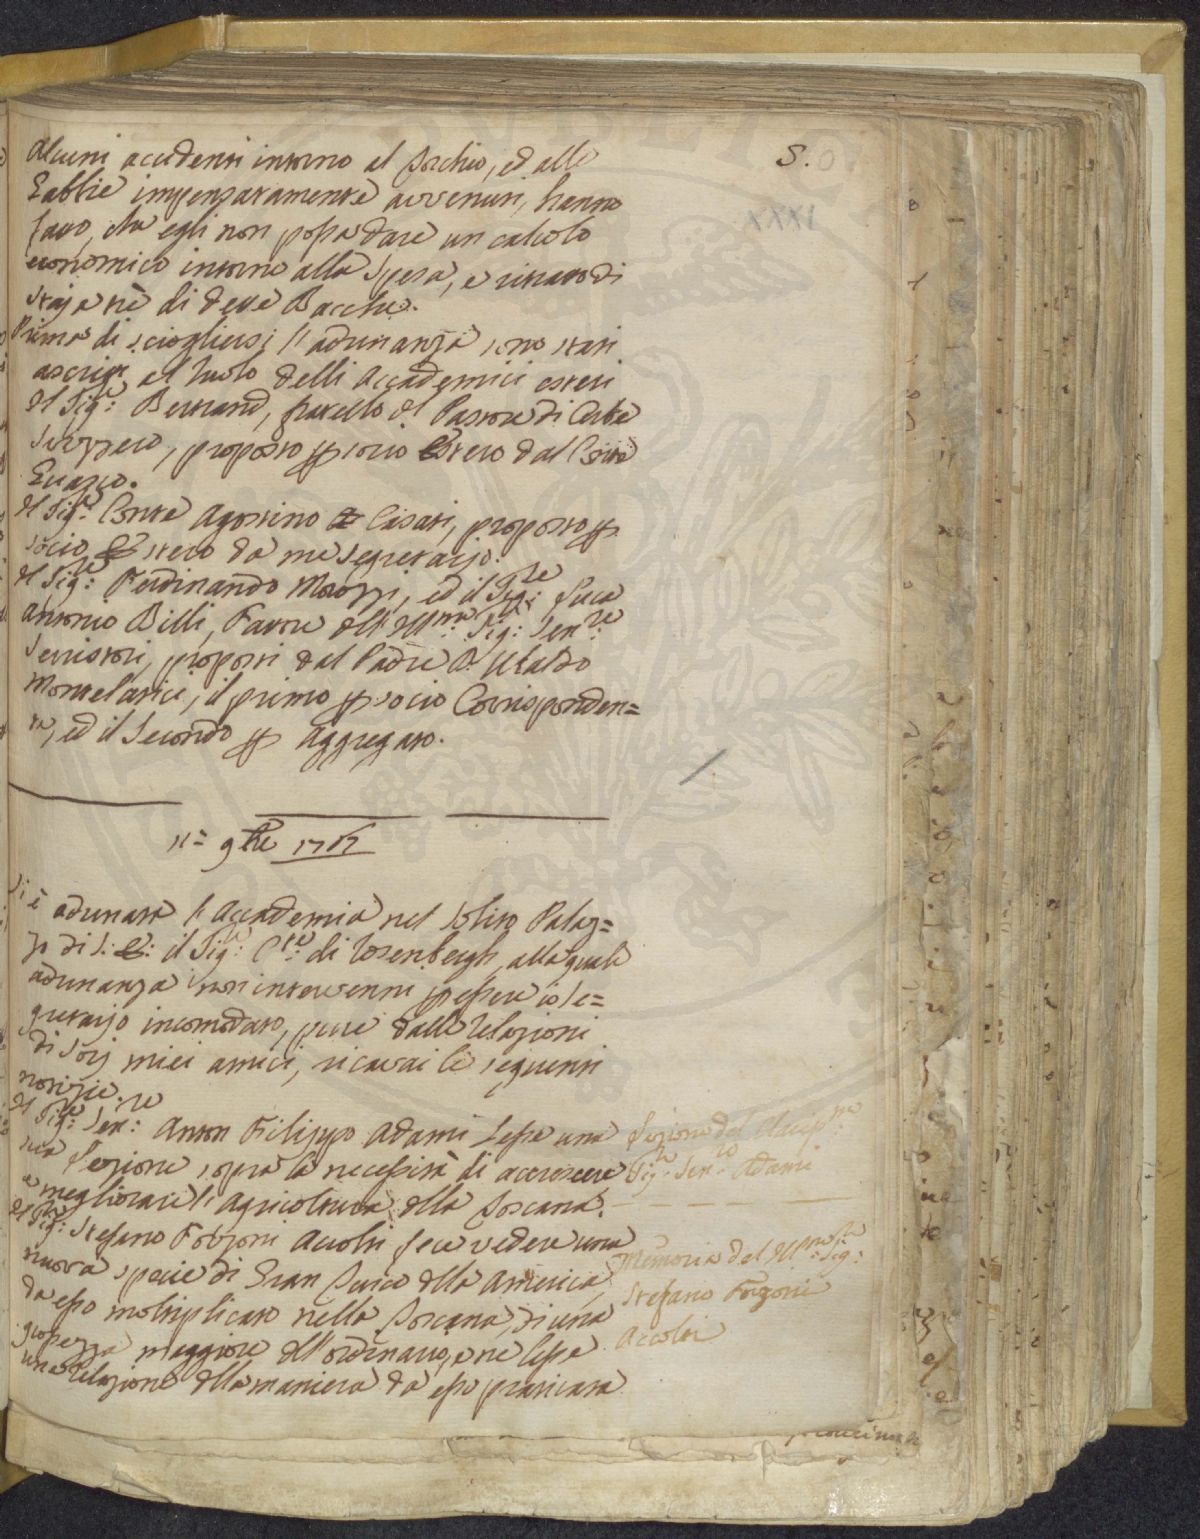 5.
Alcuni accidenti intorno al Torchio, ed alle
Gabbie impensatamente avvenuti, hanno
fatto, che egli non possa dare un calcolo
economico intorno alla Spesa, e ritratto di
staja tre di dette Bacche.
Prima di sciogliersi l'adunanza sono stati
ascritti al Ruolo delli Accademici esteri
Il Sig:re Bertrand, fratello del Pastore di Orbe
Svizzero, proposto p socio Estero dal Conte
Il Sig:re Conte Agostino Casati, proposto p
socio Estero da me Segretario.
Il Sig:re Ferdinando Morozzi, ed il Sig:re Luca
Antonio Billi, Fattore dell'Ill:mo Sig:re Sen:re
Serristori, proposti dal Padre D. Ubaldo
Montelatici, il primo p socio Corresponden=
te, ed il Secondo p Aggregato.
9bre 1767
Si è adunata l'Accademia nel solito Palaz=
zo di S: E: il Sig:re C:te di Rosenbergh, alla quale
adunanza non intervenni p essere io Se=
gretario incomodato, pure dalle Relazioni
di Socj miei amici, ricavai le seguenti
notizie.
Il Sig:re Sen:re Anton Filippo Adami Lesse una
sua Lezione sopra la necessità di accrescere
e megliorare l'Agricoltura della Toscana.
Il Sig:re Stefano Fabroni Accolti fece vedere una
nuova specie di Gran Turco della America
da esso moltiplicato nella Toscana, di una
grossezza maggiore dell'ordinario, e ne lesse
una relazione della maniera da esso praticata
Lezione del
Sig:re Sen:re Adami
Memoria del Ill:mo Sig:re
Stefano
Accolti